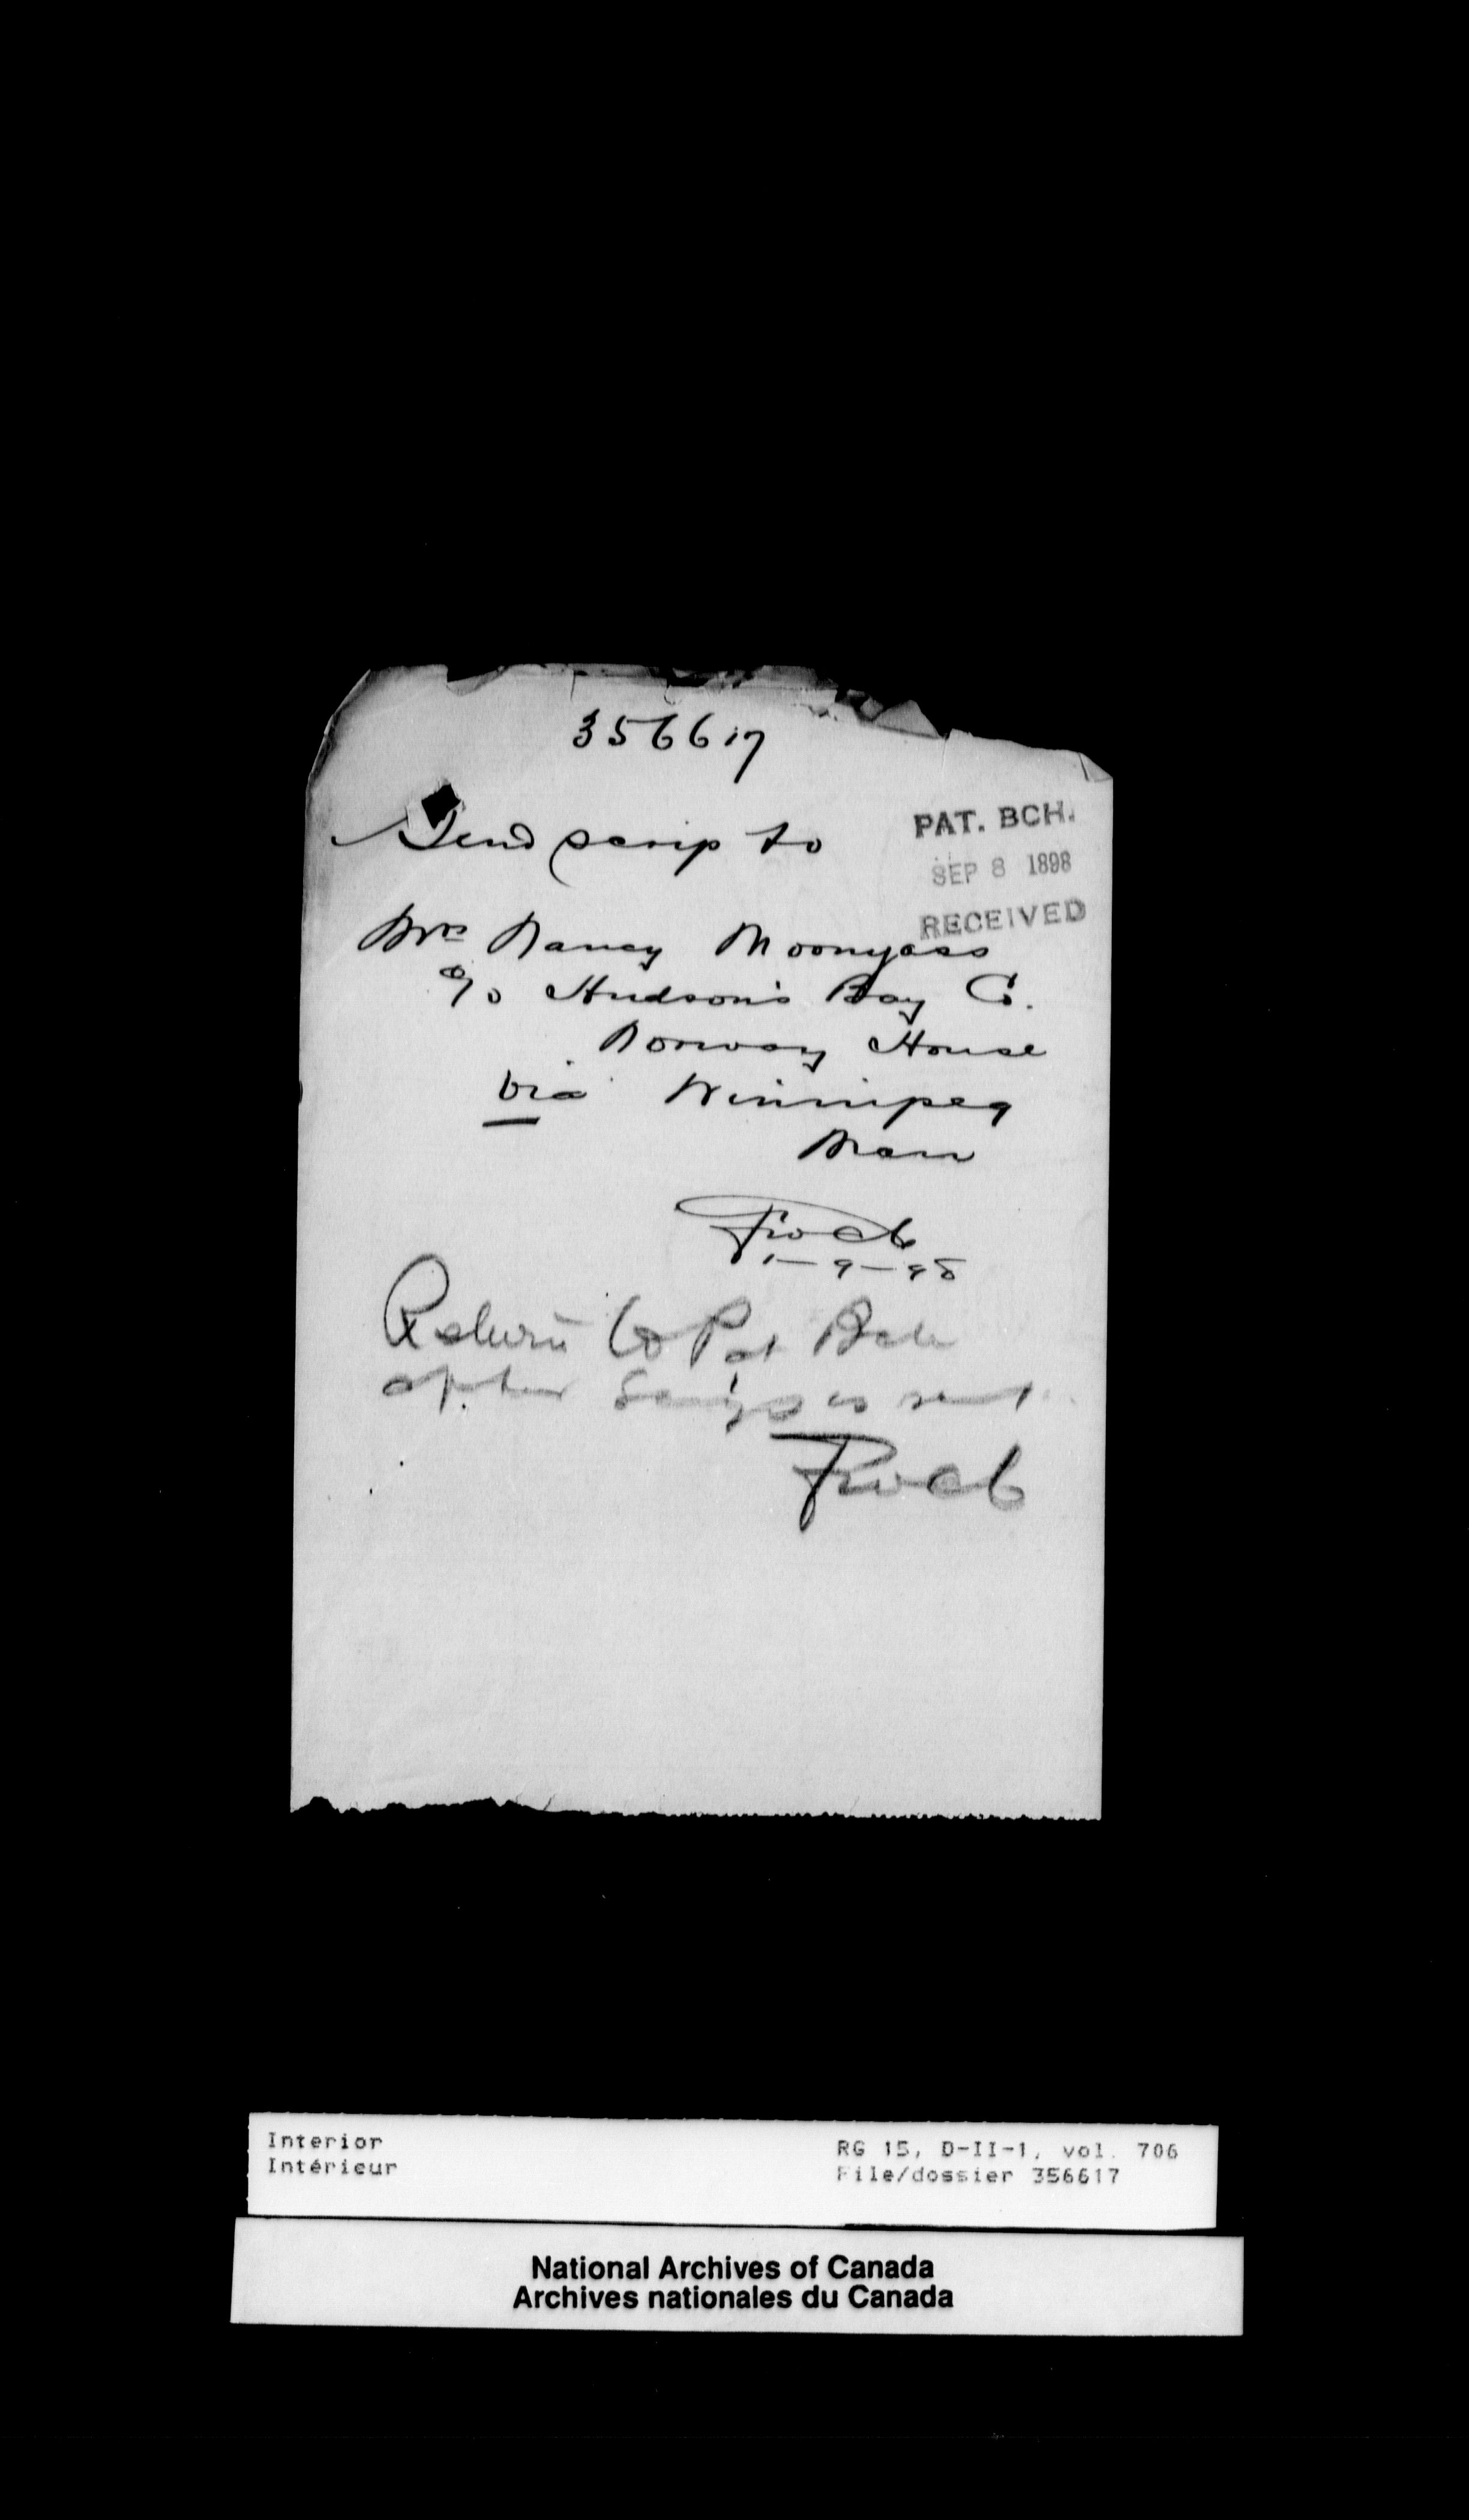 356617
Send scrip to
PAT. BCH.
SEP 8 1898
RECEIVED
Mrs Nancy Moonyass
c/o Hudson's Bay Co.
Norway House
via Winnipeg
Man
1-9-98
Return to Pat Bch
after Scrip is sent
Interior
Intérieur
RG 15, D-II-1, vol. 706
File/dossier 356617
National Archives of Canada
Archives nationales du Canada